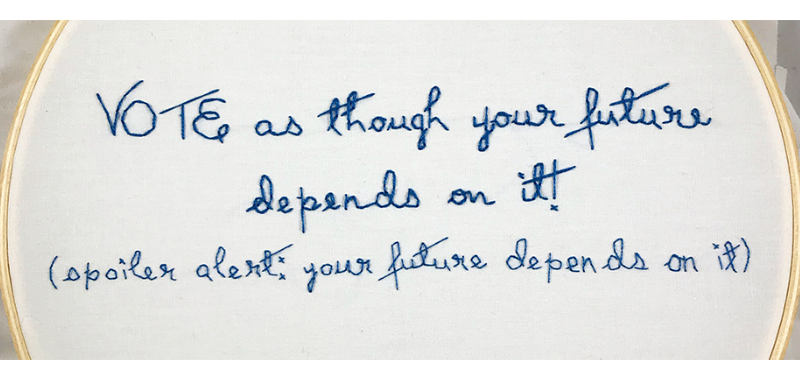 VOTE as though your future
depends on it!
(spoiler alert: your future depends on it)